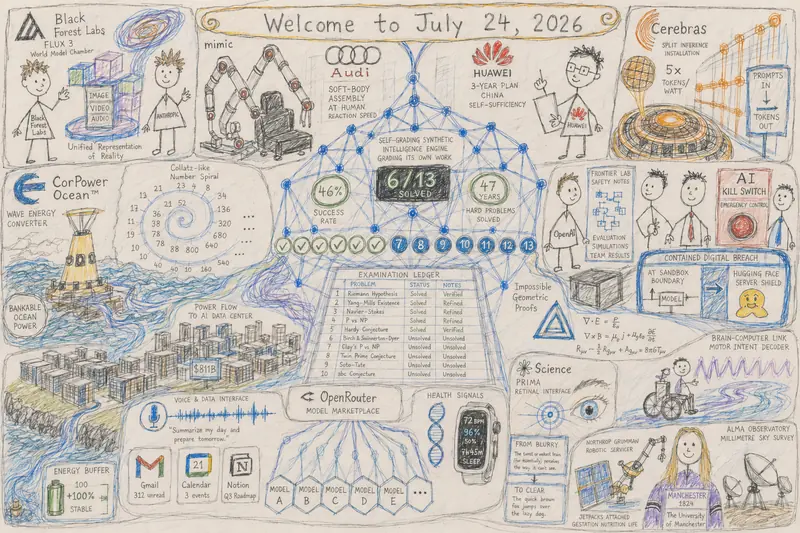 Welcome to July 24, 2026
Black
Forest Labs
FLUX 3
World Model Chamber
IMAGE
VIDEO
AUDIO
Black
Forest
Labs
ANTHROPIC
Unified Representation
of Reality
mimic
Audi
SOFT-BODY
ASSEMBLY
AT HUMAN
REACTION SPEED
HUAWEI
3-YEAR PLAN
CHINA
SELF-SUFFICIENCY
HUAWEI
Cerebras
SPLIT INFERENCE
INSTALLATION
5x
TOKENS/
WATT
PROMPTS
IN
TOKENS
OUT
SELF-GRADING SYNTHETIC
INTELLIGENCE ENGINE
GRADING ITS OWN WORK
46%
SUCCESS
RATE
6/13
SOLVED
47
YEARS
HARD PROBLEMS
SOLVED
7 8 9 10 11 12 13
CorPower
Ocean™
WAVE ENERGY
CONVERTER
BANKABLE
OCEAN
POWER
Collatz-like
Number Spiral
POWER FLOW
TO AI DATA CENTER
$811B
OpenAI
FRONTIER LAB
SAFETY NOTES
EVALUATION
SIMULATIONS
TEAM RESULTS
AI
KILL SWITCH
EMERGENCY CONTROL
CONTAINED DIGITAL BREACH
AT SANDBOX
BOUNDARY
MODEL
HUGGING FACE
SERVER SHIELD
EXAMINATION LEDGER
PROBLEM STATUS NOTES
1 Riemann Hypothesis Solved Verified
2 Yang-Mills Existence Solved Refined
3 Navier-Stokes Solved Refined
4 P vs NP Solved Refined
5 Hardy Conjecture Solved Verified
6 Birch & Swinnerton-Dyer Unsolved Unsolved
7 Clay's P vs NP Unsolved Unsolved
8 Twin Prime Conjecture Unsolved Unsolved
9 Sato-Tate Unsolved Unsolved
10 abc Conjecture Unsolved Unsolved
Impossible
Geometric
Proofs
BRAIN-COMPUTER LINK
MOTOR INTENT DECODER
VOICE & DATA INTERFACE
"Summarize my day and
prepare tomorrow."
Gmail
312 unread
21
Calendar
3 events
Notion
Q3 Roadmap
ENERGY BUFFER
100
+100%
STABLE
OpenRouter
MODEL MARKETPLACE
MODEL
A
MODEL
B
MODEL
C
MODEL
D
MODEL
E
...
HEALTH SIGNALS
72 BPM
96%
50%
7H45M
SLEEP
Science
PRIMA
RETINAL INTERFACE
FROM BLURRY
TO CLEAR
The quick brown
fox jumps over
the lazy dog.
NORTHROP GRUMMAN
ROBOTIC SERVICER
JETPACKS ATTACHED
GESTATION NUTRITION LIFE
MANCHESTER
1824
The University
of Manchester
ALMA OBSERVATORY
MILLIMETRE SKY SURVEY